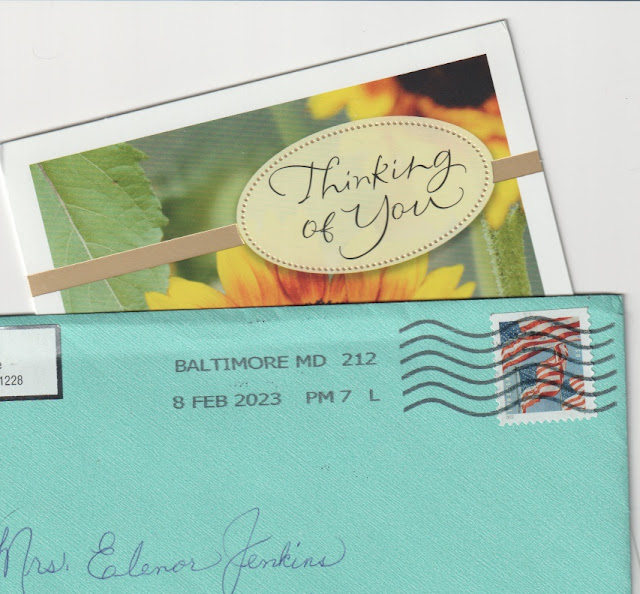 Thinking
of You
e
1228
BALTIMORE MD 212
8 FEB 2023 PM 7 L
Mrs. Elenor Jenkins